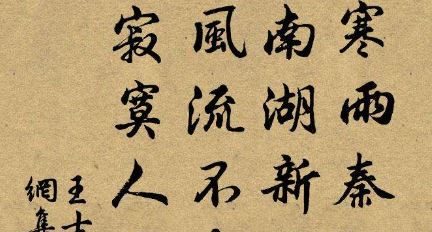 寒雨秦
南湖新
風流不
寂寞人
王士
網集